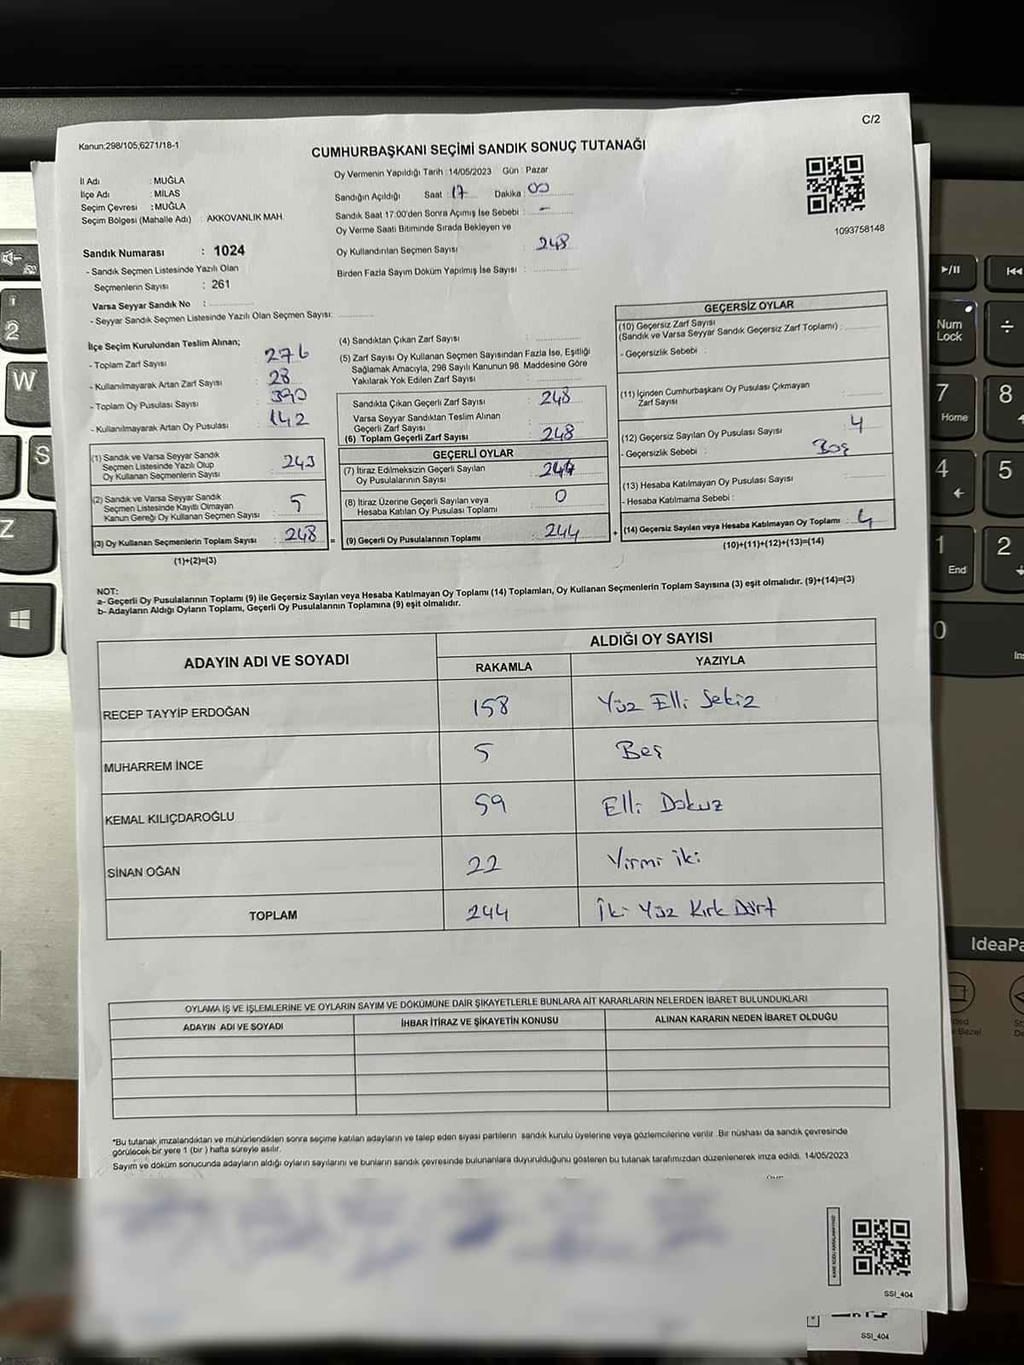 C/2
Kanun:298/105,6271/18-1
CUMHURBAŞKANI SEÇİMİ SANDIK SONUÇ TUTANAĞI
İl Adı : MUĞLA
İlçe Adı : MİLAS
Seçim Çevresi : MUĞLA
Seçim Bölgesi (Mahalle Adı) : AKKOVANLIK MAH.
Sandık Numarası : 1024
- Sandık Seçmen Listesinde Yazılı Olan
Seçmenlerin Sayısı : 261
Varsa Seyyar Sandık No :
- Seyyar Sandık Seçmen Listesinde Yazılı Olan Seçmen Sayısı:
Oy Vermenin Yapıldığı Tarih :14/05/2023 Gün : Pazar
Sandığın Açıldığı Saat 17 Dakika 00
Sandık Saat 17:00'den Sonra Açımış İse Sebebi : -
Oy Verme Saati Bitiminde Sırada Bekleyen ve
Oy Kullandırılan Seçmen Sayısı : 248
Birden Fazla Sayım Döküm Yapılmış İse Sayısı :
1093758148
İlçe Seçim Kurulundan Teslim Alınan;
- Toplam Zarf Sayısı : 276
- Kullanılmayarak Artan Zarf Sayısı : 28
- Toplam Oy Pusulası Sayısı : 390
- Kullanılmayarak Artan Oy Pusulası : 142
(1) Sandık ve Varsa Seyyar Sandık
Seçmen Listesinde Yazılı Olup
Oy Kullanan Seçmenlerin Sayısı : 243
(2) Sandık ve Varsa Seyyar Sandık
Seçmen Listesinde Kayıtlı Olmayan
Kanun Gereği Oy Kullanan Seçmen Sayısı : 5
(3) Oy Kullanan Seçmenlerin Toplam Sayısı : 248 =
(1)+(2)=(3)
(4) Sandıktan Çıkan Zarf Sayısı :
(5) Zarf Sayısı Oy Kullanan Seçmen Sayısından Fazla İse, Eşitliği
Sağlamak Amacıyla, 298 Sayılı Kanunun 98. Maddesine Göre
Yakılarak Yok Edilen Zarf Sayısı :
Sandıkta Çıkan Geçerli Zarf Sayısı : 248
Varsa Seyyar Sandıktan Teslim Alınan
Geçerli Zarf Sayısı :
(6) Toplam Geçerli Zarf Sayısı : 248
GEÇERLİ OYLAR
(7) İtiraz Edilmeksizin Geçerli Sayılan
Oy Pusulalarının Sayısı : 244
(8) İtiraz Üzerine Geçerli Sayılan veya
Hesaba Katılan Oy Pusulası Toplamı : 0
(9) Geçerli Oy Pusulalarının Toplamı : 244 +
GEÇERSİZ OYLAR
(10) Geçersiz Zarf Sayısı
(Sandık ve Varsa Seyyar Sandık Geçersiz Zarf Toplamı) :
- Geçersizlik Sebebi :
(11) İçinden Cumhurbaşkanı Oy Pusulası Çıkmayan
Zarf Sayısı :
(12) Geçersiz Sayılan Oy Pusulası Sayısı : 4
- Geçersizlik Sebebi : Boş
(13) Hesaba Katılmayan Oy Pusulası Sayısı :
- Hesaba Katılmama Sebebi :
(14) Geçersiz Sayılan veya Hesaba Katılmayan Oy Toplamı : 4
(10)+(11)+(12)+(13)=(14)
NOT:
a- Geçerli Oy Pusulalarının Toplamı (9) ile Geçersiz Sayılan veya Hesaba Katılmayan Oy Toplamı (14) Toplamları, Oy Kullanan Seçmenlerin Toplam Sayısına (3) eşit olmalıdır. (9)+(14)=(3)
b- Adayların Aldığı Oyların Toplamı, Geçerli Oy Pusulalarının Toplamına (9) eşit olmalıdır.
ADAYIN ADI VE SOYADI ALDIĞI OY SAYISI
RAKAMLA YAZIYLA
RECEP TAYYİP ERDOĞAN 158 Yüz Elli Sekiz
MUHARREM İNCE 5 Beş
KEMAL KILIÇDAROĞLU 59 Elli Dokuz
SİNAN OĞAN 22 Yirmi iki
TOPLAM 244 İki Yüz Kırk Dört
OYLAMA İŞ VE İŞLEMLERİNE VE OYLARIN SAYIM VE DÖKÜMÜNE DAİR ŞİKAYETLERLE BUNLARA AİT KARARLARIN NELERDEN İBARET BULUNDUKLARI
ADAYIN ADI VE SOYADI İHBAR İTİRAZ VE ŞİKAYETİN KONUSU ALINAN KARARIN NEDEN İBARET OLDUĞU
*Bu tutanak imzalandıktan ve mühürlendikten sonra seçime katılan adayların ve talep eden siyasi partilerin sandık kurulu üyelerine veya gözlemcilerine verilir. Bir nüshası da sandık çevresinde
görülecek bir yere 1 (bir ) hafta süreyle asılır.
Sayım ve döküm sonucunda adayların aldığı oyların sayılarını ve bunların sandık çevresinde bulunanlara duyurulduğunu gösteren bu tutanak tarafımızdan düzenlenerek imza edildi. 14/05/2023
SSI_404
SSI_404
2
W
S
Z
Num
Lock
÷
7
Home
8
4
5
1
End
2
0
Ins
IdeaPa